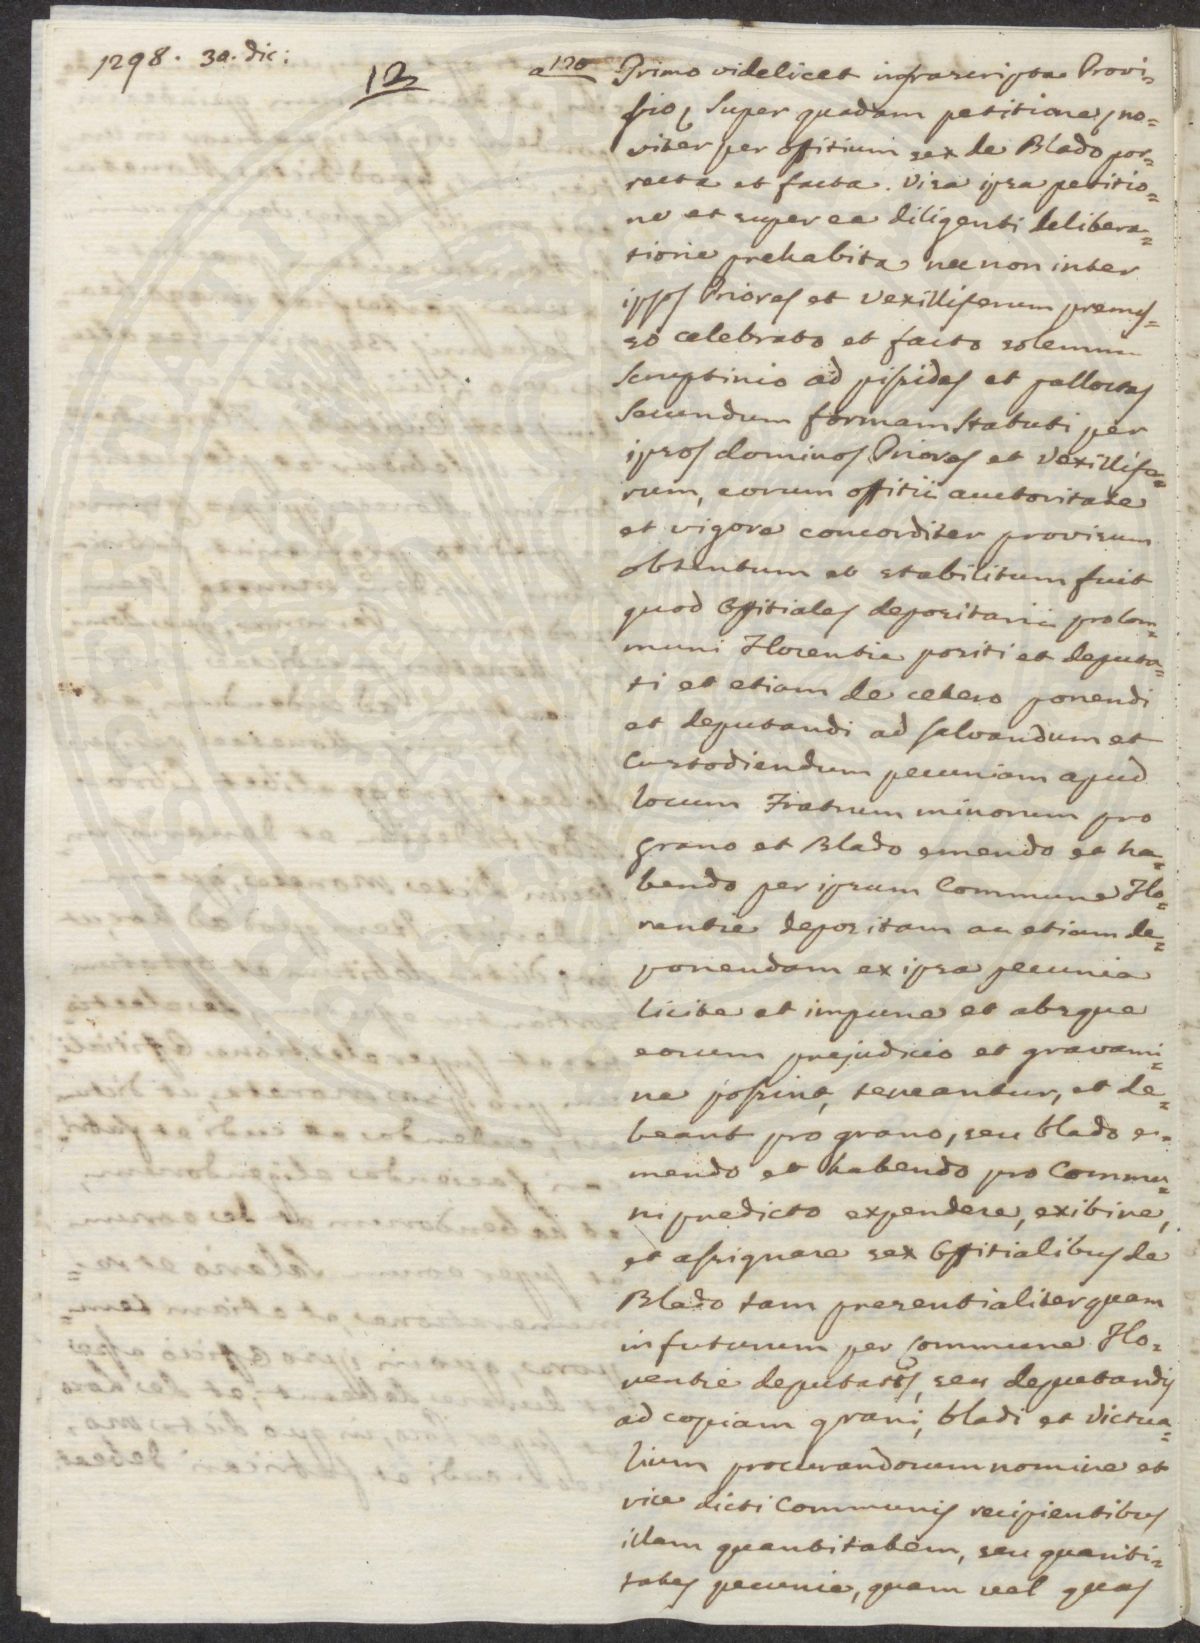 1298. 30. dic:
12
a 120
Primo videlicet infrascripta Provi=
sio, super quadam petitione, no=
viter per offitium sex de Blado por=
recta et facta. Visa ipsa petitio=
ne et super ea diligenti delibera=
tione prehabita nec non inter
ipsos Priores et Vexilliferum premis=
so celebrato et facto solemni
scruptinio ad pissides et palloctas
secundum formam statuti per
ipsos dominos Priores et Vexillife=
rum, eorum offitii auctoritate
et vigore concorditer provisum
obtentum et stabilitum fuit
quod Offitiales depositarii pro Com=
muni Florentie positi et deputa=
ti et etiam de cetero ponendi
et deputandi ad salvandum et
Custodiendum pecuniam apud
locum Fratrum minorum pro
grano et Blado emendo et ha=
bendo per ipsum Commune Flo=
rentie depositam ac etiam de=
ponendam ex ipsa pecunia
licite et impune et absque
eorum prejudicio et gravami=
ne possint, teneantur, et de=
beant pro grano, seu blado e=
mendo et habendo pro Commu=
ni predicto expendere, exibire,
et assignare sex Offitialibus de
Blado tam presentialiter quam
in futurum per Commune Flo=
rentie deputatis, seu deputandis
ad copiam grani, bladi et victua=
lium procurandorum nomine et
vice dicti Communis recipientibus
illam quantitatem, seu quanti=
tates pecunie, quam vel quas